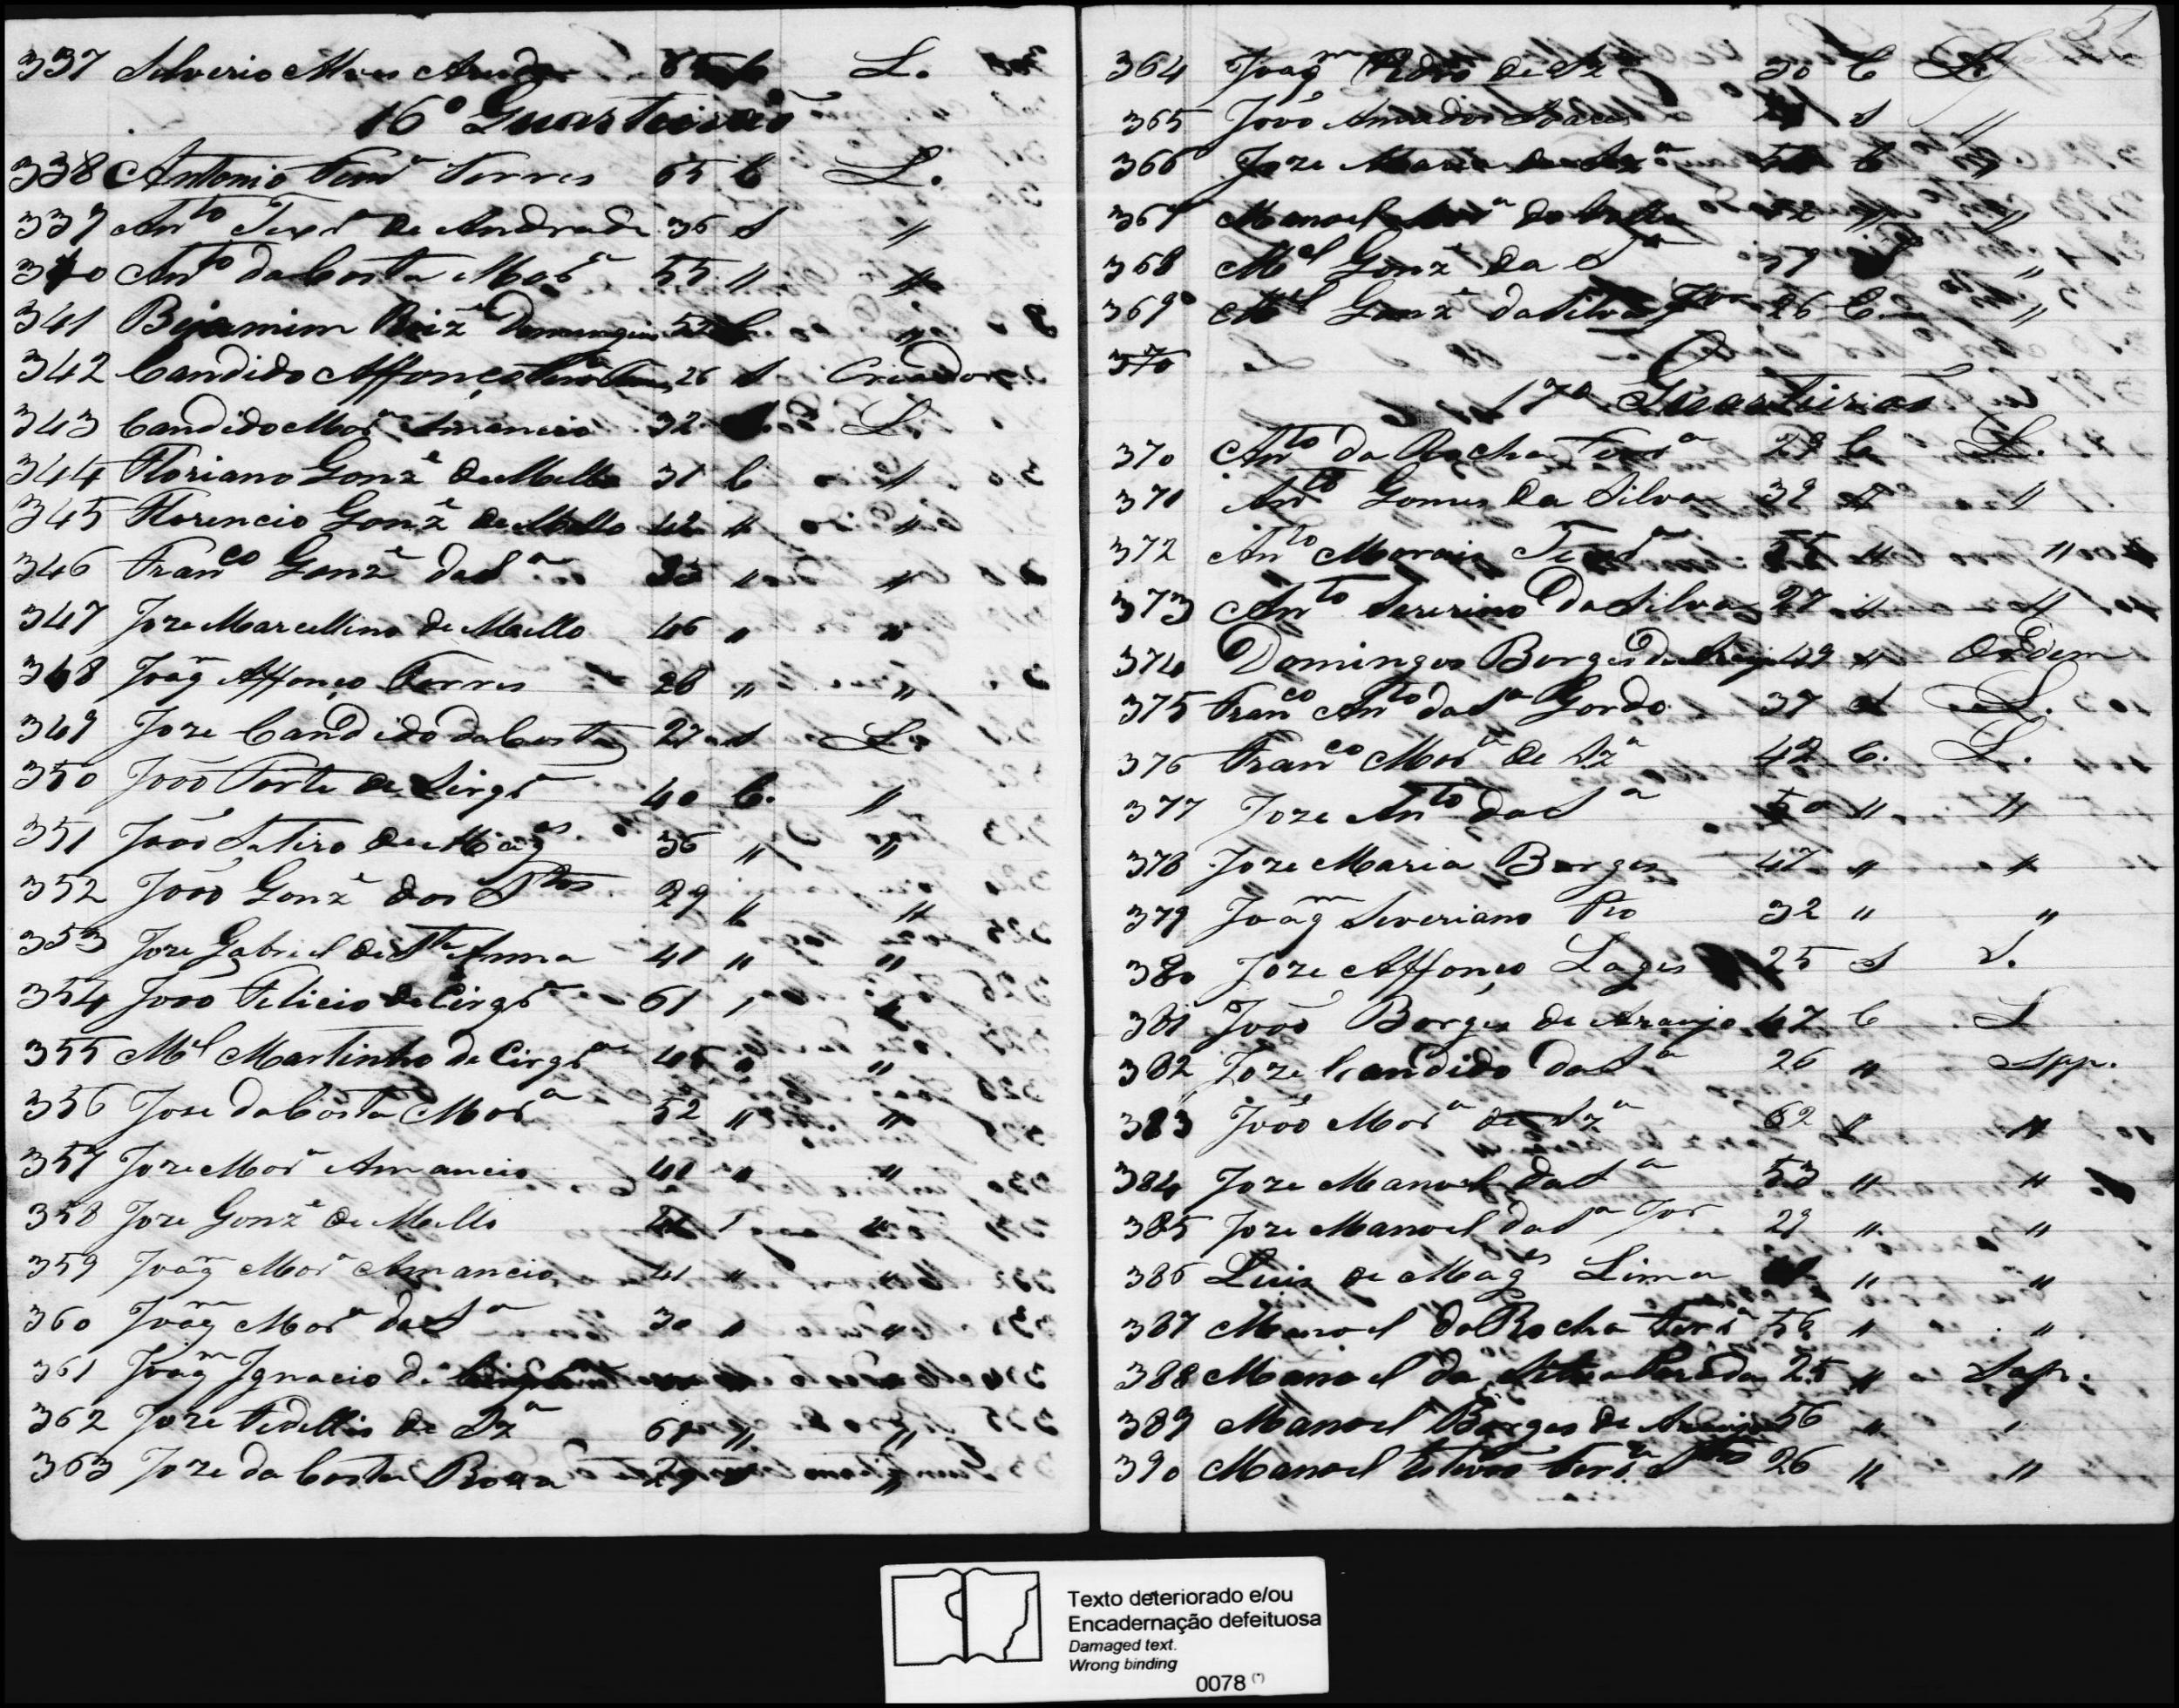 337 Silverio Alves Arruda 85 L.
16º Quarteirão
338 Antonio Ferrª Torres 65 C L.
339 Antº Teixrª de Andrade 36 S "
340 Antº da Costa Morª 55 " "
341 Bejamim Roiz Domingues 52 C "
342 Candido Affonço 26 S Criador
343 Candido Morª Amancio 32 L.
344 Floriano Gonzê de Mello 31 C "
345 Florencio Gonzê de Mello 42 " "
346 Francº Gonzê da Sª 35 " "
347 Joze Marcellino de Mello 46 " "
348 Joaqm Affonço Torres 28 " "
349 Joze Candido da Costa 27 S L.
350 João Forte de Sirqrª 40 C. "
351 João Sutiro de Magês 36 " "
352 João Gonzê dos Stos 29 " "
353 Joze Gabriel de Stª Anna 41 " "
354 João Felicio de Cirqrª 61 " "
355 Mel Martinho de Cirqrª 45 " "
356 Jose da Costa Morª 52 " "
357 Joze Morª Amancio 41 " "
358 Joze Gonzê de Mello 41 " "
359 Joaqm Morª Amancio 41 " "
360 Joaqm Morª da Sª 30 " "
361 Joaqm Ignacio de
362 Joze Fedellis de Szª 69 " "
363 Joze da Costa Roza 29 " "
51
364 Joaqm Pedro de Szª 30 C L
365 João Amador Soares S "
366 Joze Maria de Szª 50 C "
367 Manoel Morª da 32 " "
368 Mel Gonzê da Sª 37 "
369 Mel Gonzê da Silva Jor 26 C. "
370
17º Quarteirão
370 Antº da Rocha Ferrª 29 C L.
371 Antº Gomes da Silva 32 " "
372 Antº Morais Teixrª 55 " "
373 Antº Sererino da Silva 27 " "
374 Domingos Borges de Araujo 49 " Ordem
375 Francº Antº da Sª Gordo 37 S L.
376 Francº Morª de Szª 42 C. L.
377 Joze Antº da Sª 50 " "
378 Joze Maria Borges 47 " "
379 Joaqm Severiano Pio 32 " "
380 Joze Affonço Lages 25 S L.
381 João Borges de Araujo 47 C L
382 Joze Candido da Sª 26 " Sap.
383 João Morª de Szª 62 " "
384 Joze Manoel da Sª 53 " "
385 Joze Manoel da Sª Jor 29 " "
386 Luiz de Magês Lima " "
387 Manoel da Rocha Ferrª 56 " "
388 Manoel da 25 " Sap.
389 Manoel Borges de Araujo 56 " "
390 Manoel Estevão Ferrª 26 " "
Texto deteriorado e/ou
Encadernação defeituosa
Damaged text.
Wrong binding
0078 (*)